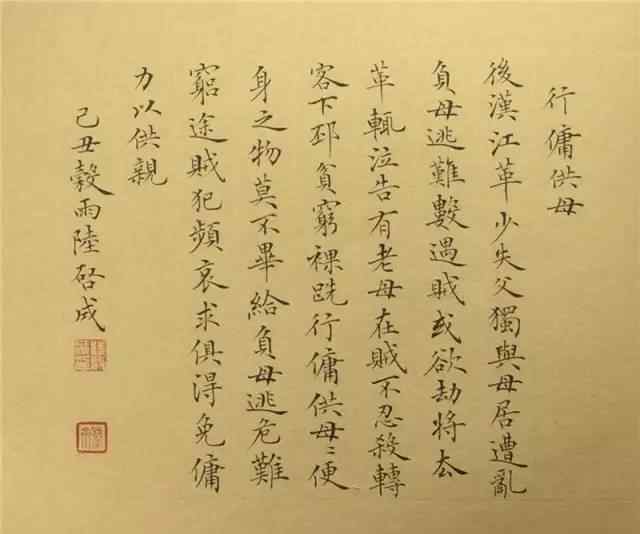 行傭供母
後漢江革少失父獨與母居遭亂
負母逃難數遇賊或欲劫將去
革輒泣告有老母在賊不忍殺轉
客下邳貧窮裸跣行傭供母〻便
身之物莫不畢給負母逃危難
窮途賊犯頻哀求俱得免傭
力以供親
己丑穀雨陸啓成